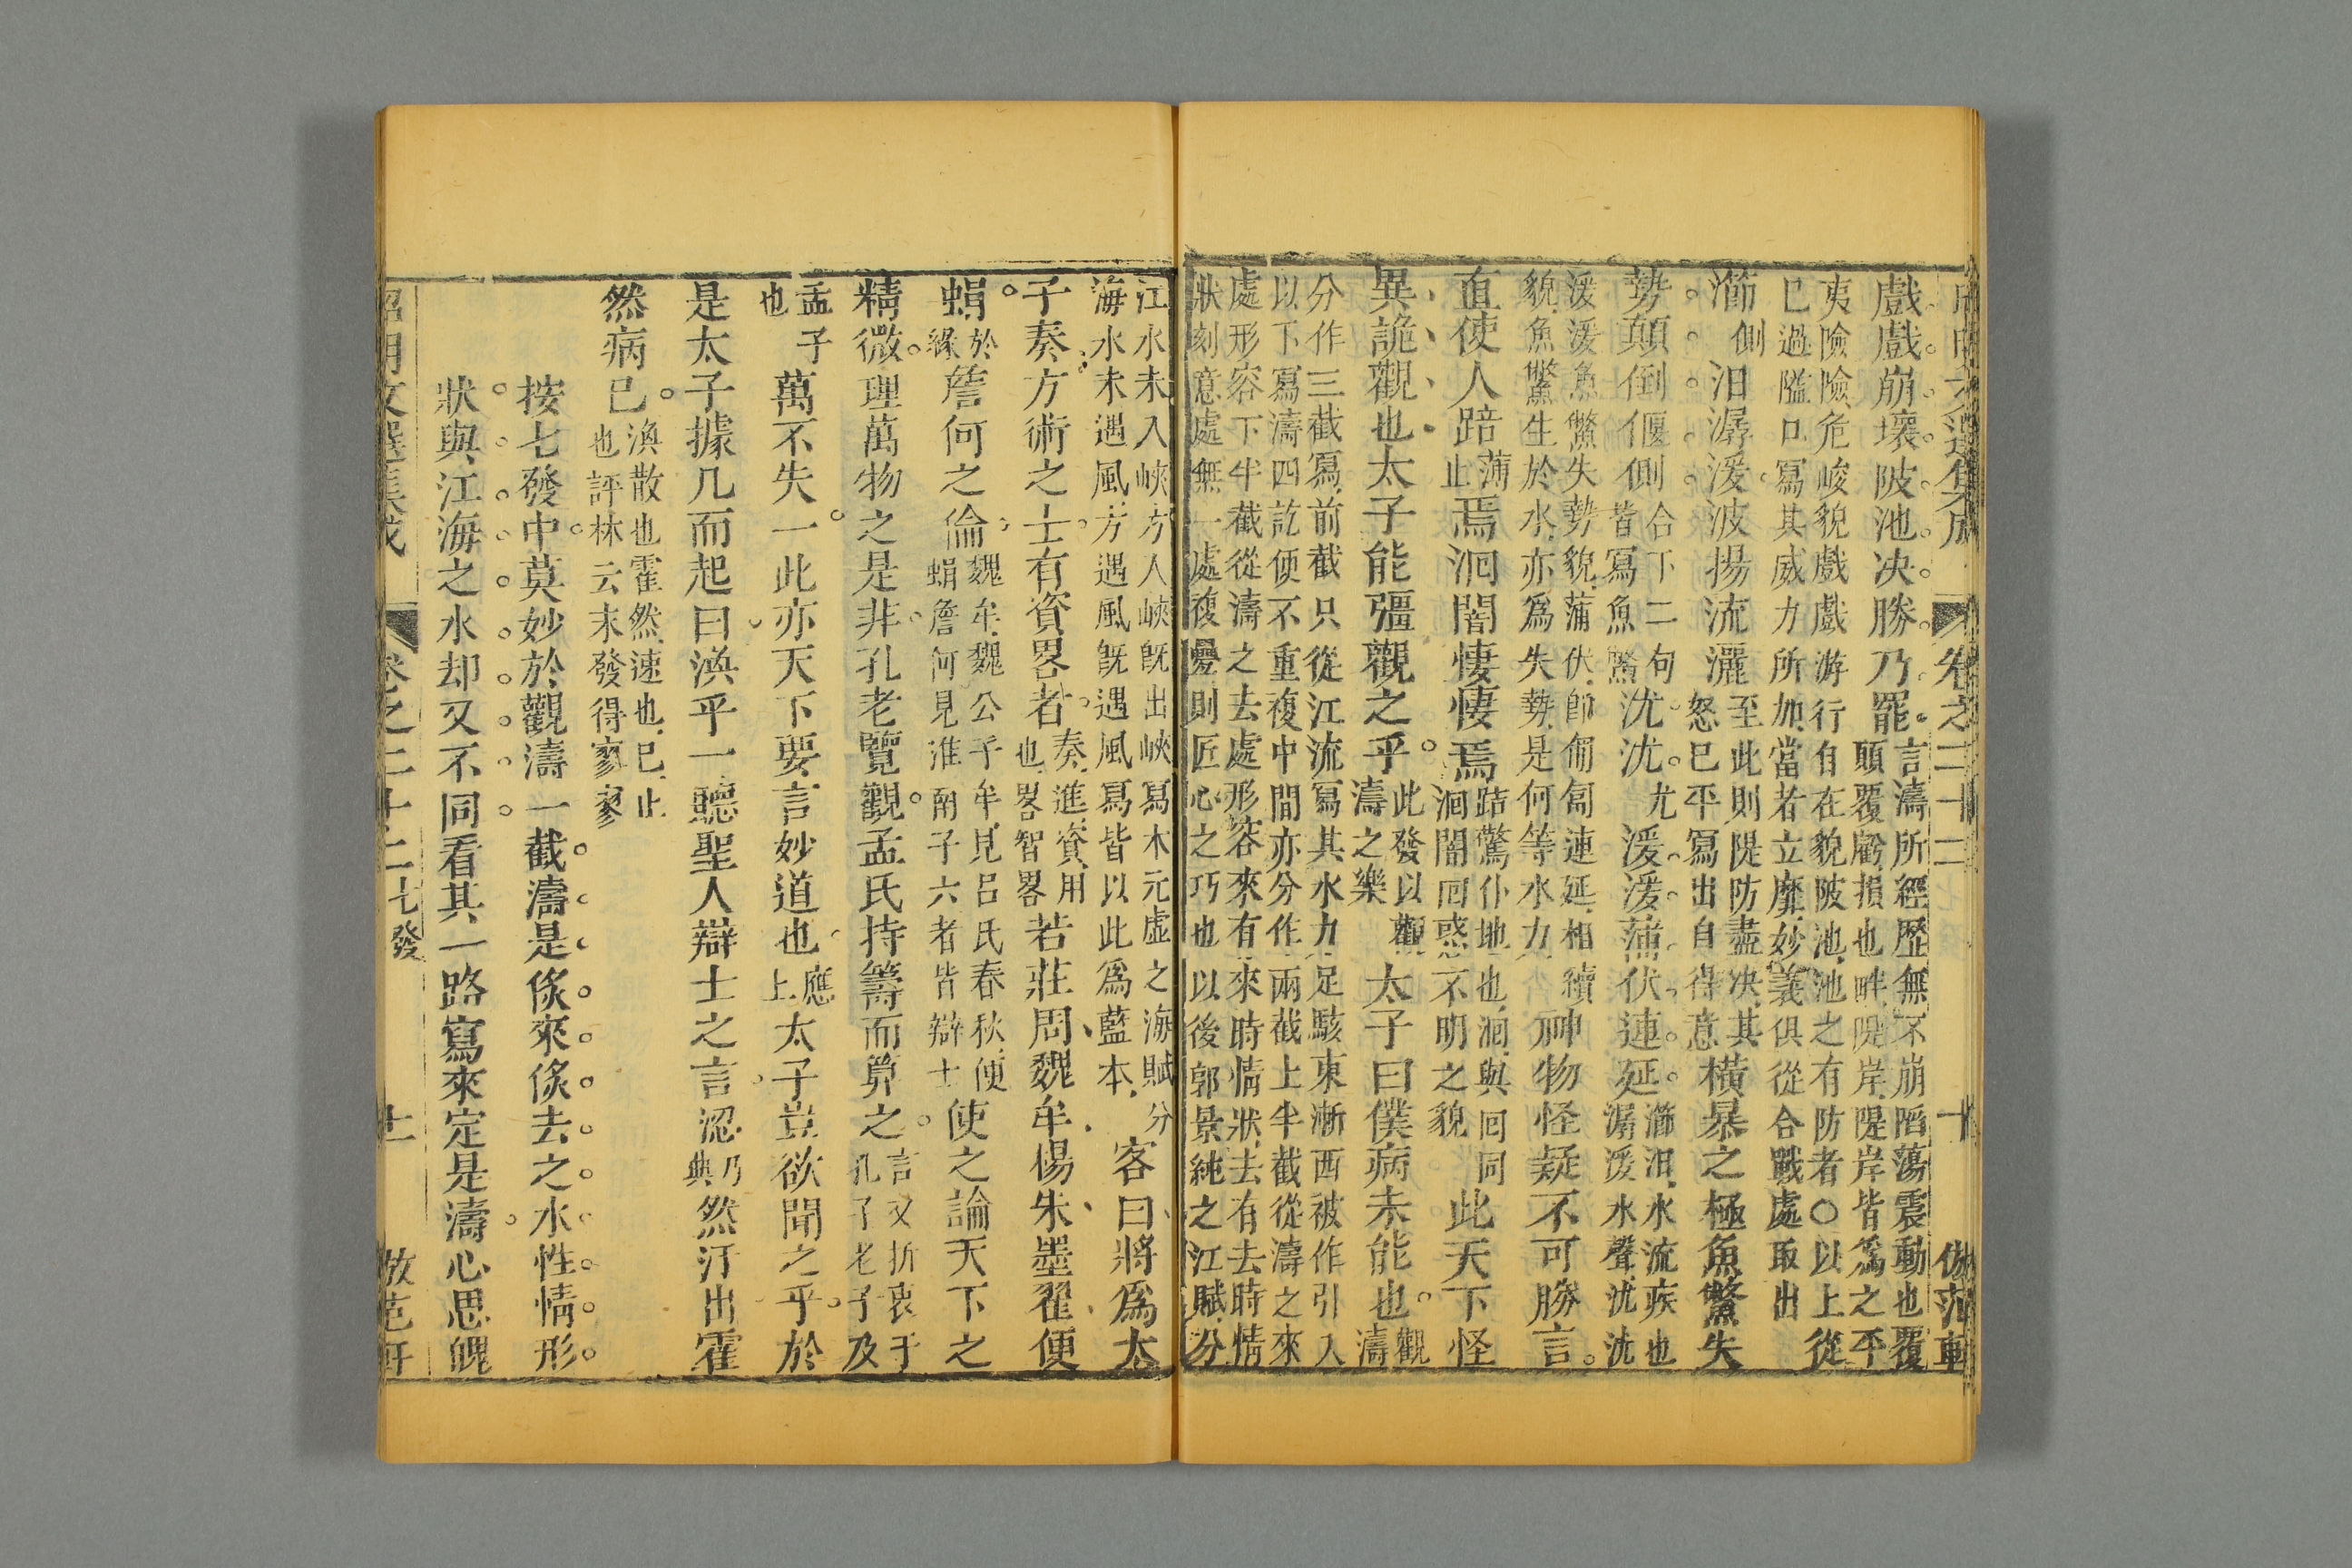 昭明文選集成 卷之二十二 十 倣范軒
戲戲崩壞陂池决勝乃罷言濤所經歷無不崩陷蕩震動也覆
顛覆虧損也畔隄岸隄岸皆爲之平
夷險險危峻貌戲戲游行自在貌陂池池之有防者○以上從
已過隘口寫其威力所加當者立靡妙義俱從合戰處取出
瀄側汨潺湲波揚流灑至此則隄防盡决其
怒已平寫出自得意橫暴之極魚鱉失
勢顛倒偃側合下二句
皆寫魚鱉沈沈尤湲湲蒲伏連延瀄汨水流疾也
潺湲水聲沈沈
湲湲魚鱉失勢貌蒲伏卽匍匐連延相續
貌魚鱉生於水亦爲失勢是何等水力神物怪疑不可勝言
直使人踣薄
止焉洄闇悽悽焉踣驚仆地也洄與回同
洄闇回惑不明之貌此天下怪
異詭觀也太子能彊觀之乎此發以觀
濤之樂太子曰僕病未能也觀
濤
分作三截寫前截只從江流寫其水力足駭東漸西被作引入
以下寫濤四訖便不重複中間亦分作兩截上半截從濤之來
處形容下半截從濤之去處形容來有來時情狀去有去時情
狀刻意處無一處複疊則匠心之巧也以後郭景純之江賦分
江水未入峽方入峽旣出峽寫木元虛之海賦分
海水未遇風方遇風旣遇風寫皆以此爲藍本客曰將爲太
子奏方術之士有資畧者奏進資用
也畧智畧若莊周魏牟楊朱墨翟便
蜎於
緣詹何之倫魏牟魏公子牟見呂氏春秋便
蜎詹何見淮南子六者皆辯士使之論天下之
精微理萬物之是非孔老覽觀孟氏持籌而筭之言又折衷于
孔子老子及
孟子
也萬不失一此亦天下要言妙道也應
上太子豈欲聞之乎於
是太子據几而起曰渙乎一聽聖人辯士之言涊乃
典然汗出霍
然病已渙散也霍然速也已止
也評林云末發得寥寥
按七發中莫妙於觀濤一截濤是倐來倐去之水性情形
狀與江海之水却又不同看其一路寫來定是濤心思魄
昭明文選集成 卷之二十二 七發 十一 倣范軒